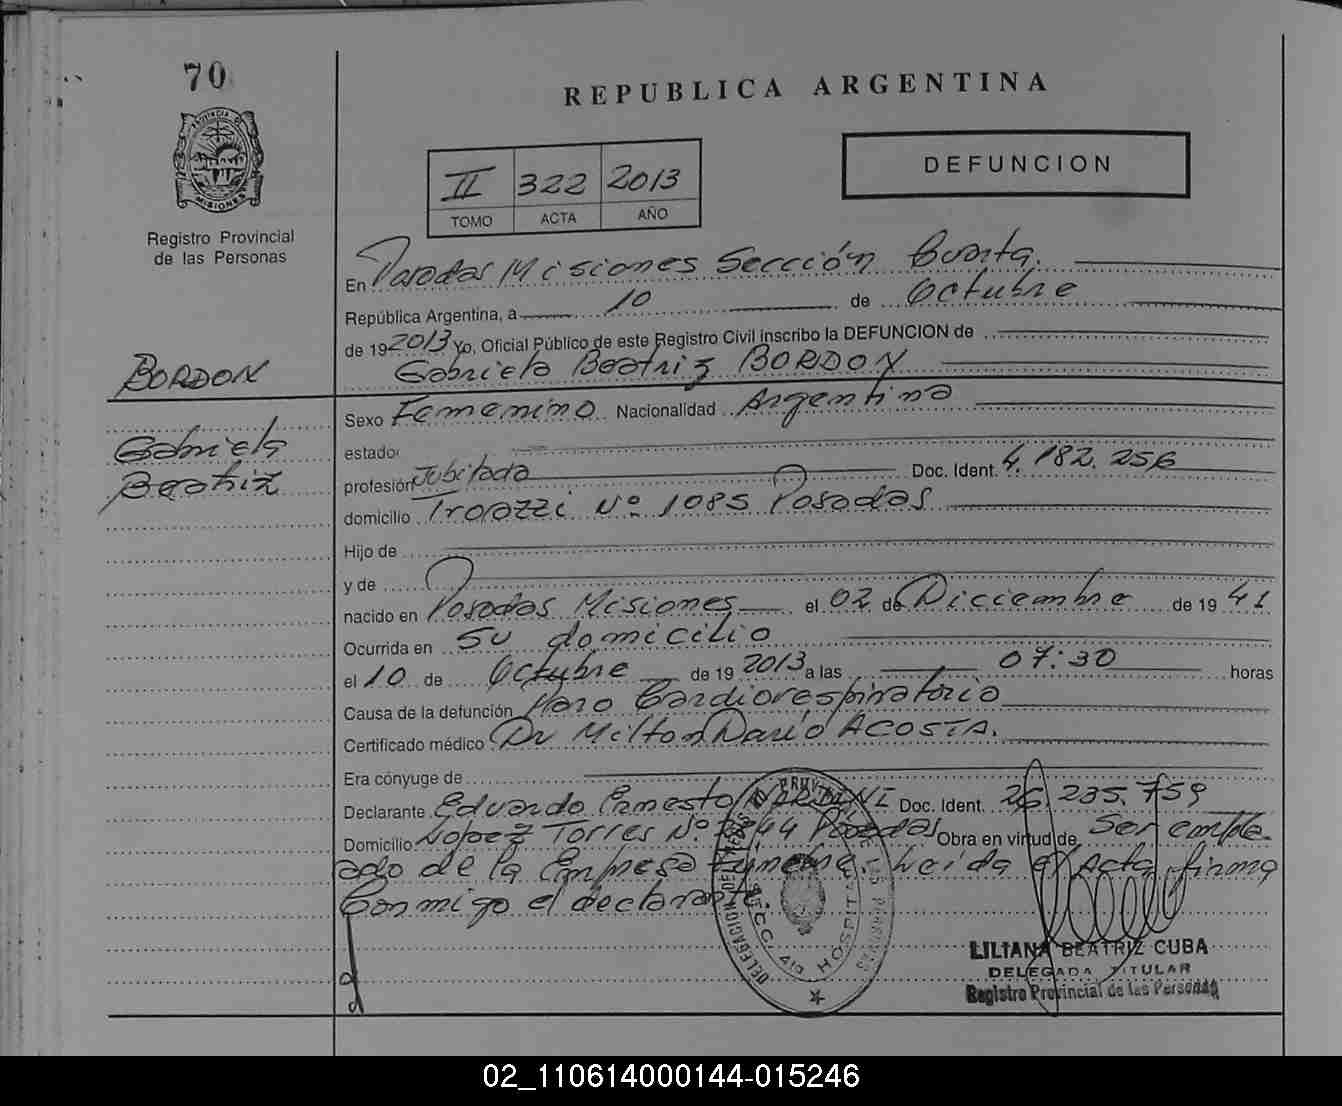 70
REPUBLICA ARGENTINA
PROVINCIA DE
MISIONES
Registro Provincial
de las Personas
II 322 2013
TOMO ACTA AÑO
DEFUNCION
En Posadas Misiones Sección Cuarta.
República Argentina, a 10 de Octubre
de 19 2013 Yo, Oficial Público de este Registro Civil inscribo la DEFUNCION de
BORDON
Gabriela Beatriz BORDON
Sexo Femenino Nacionalidad Argentina
Gabriela
estado
Beatriz
profesión Jubilada Doc. Ident. 4.182.256
domicilio Nº 1085 Posadas
Hijo de
y de
nacido en Posadas Misiones el 02 de Diciembre de 19 41
Ocurrida en Su domicilio
el 10 de Octubre de 19 2013 a las 07:30 horas
Causa de la defunción Paro Cardiorespiratorio
Certificado médico Dr Milton Dario ACOSTA.
Era cónyuge de
Declarante Eduardo Ernesto Doc. Ident. 26.235.759
Domicilio López Torres Nº Posadas Obra en virtud de Ser emple-
ado de la Empresa Fúnebre. Leída el Acta firma
Conmigo el declarante
LILIANA BEATRIZ CUBA
DELEGADA TITULAR
Registro Provincial de las Personas
02_110614000144-015246